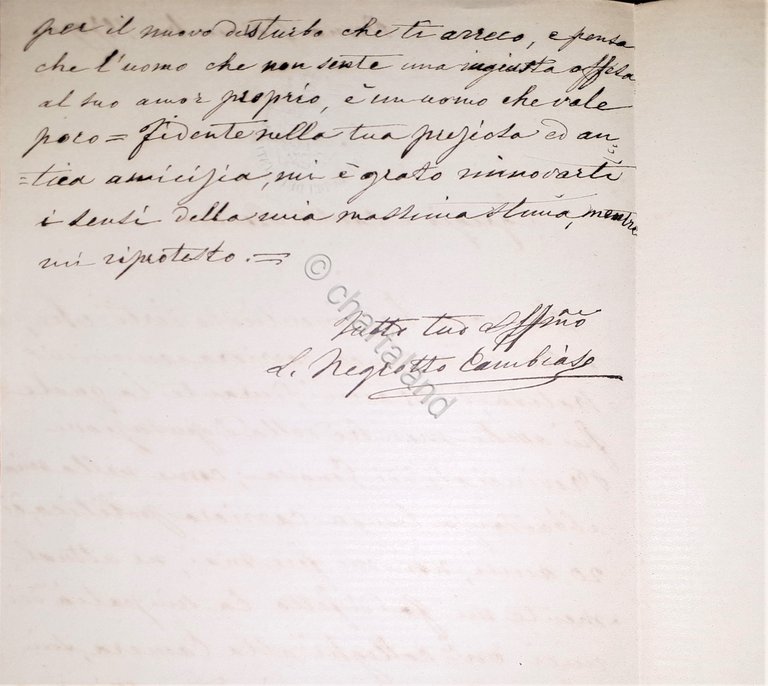 per il nuovo disturbo che ti arreco, e pensa
che l'uomo che non sente una ingiusta offesa
al suo amor proprio, è un uomo che vale
poco = Fidente nella tua preziosa ed an=
=tica amicizia, mi è grato rinnovarti
i sensi della mia massima stima, mentre
mi riprotesto. =
Tutto tuo Affmo
L. Negrotto Cambiaso
© chartaland